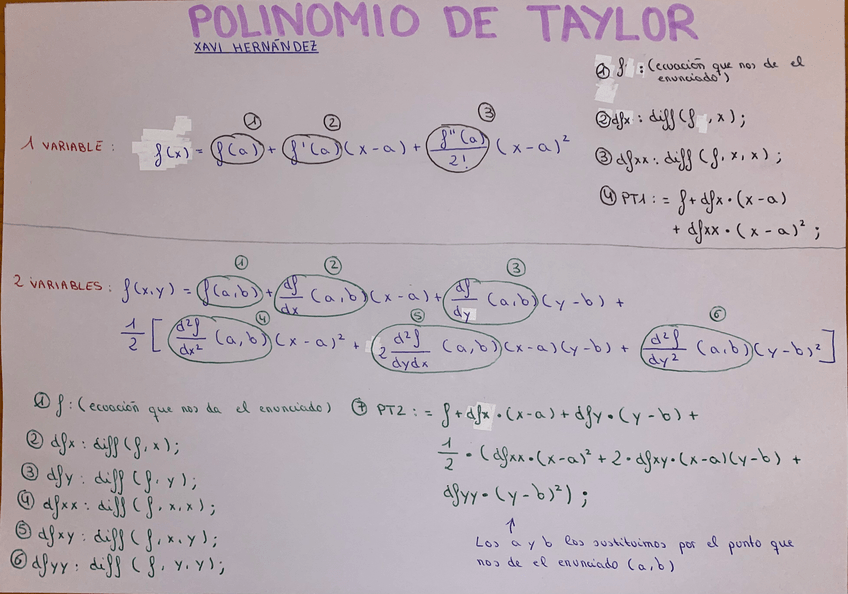 POLINOMIO DE TAYLOR
XAVI HERNÁNDEZ
1 VARIABLE: f(x) = f(a) + f'(a)(x-a) + f''(a)/2! (x-a)²
① ② ③
① f : (ecuación que nos de el
enunciado)
② dfx : diff(f ,x);
③ dfxx: diff(f,x,x);
④ PT1 := f+dfx·(x-a)
+ dfxx·(x-a)²;
① ② ③
2 VARIABLES: f(x,y) = f(a,b) + df/dx (a,b)(x-a) + df/dy (a,b)(y-b) +
④ ⑤ ⑥
1/2 [ d²f/dx² (a,b)(x-a)² + 2 d²f/dydx (a,b)(x-a)(y-b) + d²f/dy² (a,b)(y-b)² ]
① f: (ecuación que nos da el enunciado)
② dfx : diff(f,x);
③ dfy : diff(f,y);
④ dfxx : diff(f,x,x);
⑤ dfxy : diff(f,x,y);
⑥ dfyy : diff(f,y,y);
⑦ PT2 := f+dfx·(x-a)+dfy·(y-b)+
1/2·(dfxx·(x-a)²+2·dfxy·(x-a)(y-b)+
dfyy·(y-b)²);
↑
Los a y b los sustituimos por el punto que
nos de el enunciado (a,b)